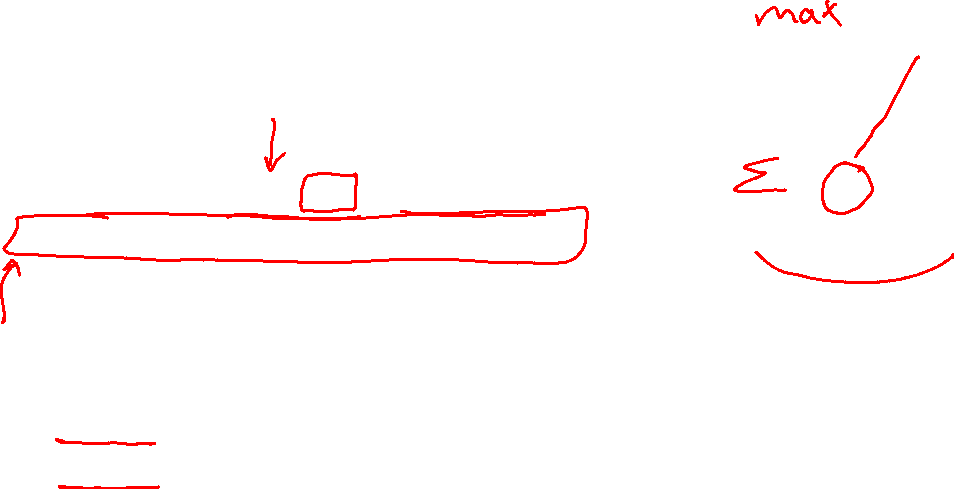 max
Σ
=